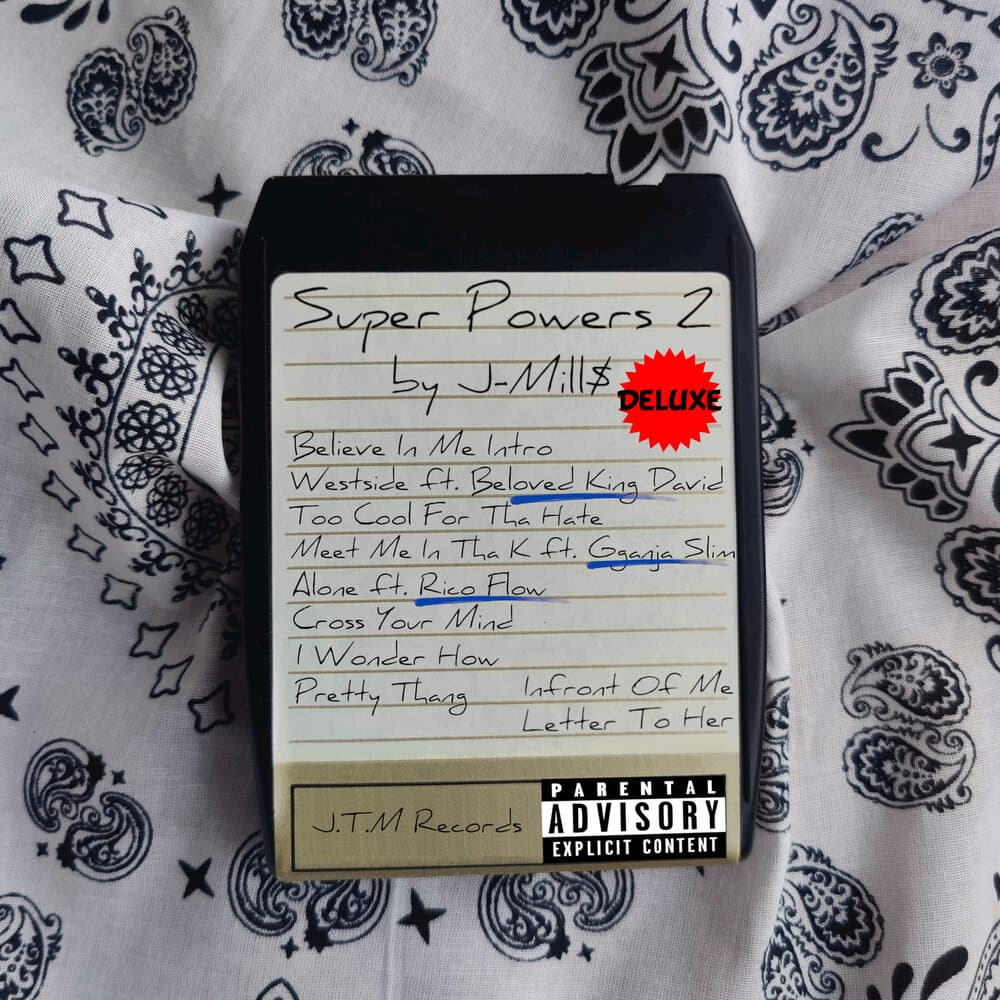 Super Powers 2
by J-Mill$
DELUXE
Believe In Me Intro
Westside ft. Beloved King David
Too Cool For Tha Hate
Meet Me In Tha K ft. Gganja Slim
Alone ft. Rico Flow
Cross Your Mind
I Wonder How
Pretty Thang
Infront Of Me
Letter To Her
J.T.M Records
PARENTAL
ADVISORY
EXPLICIT CONTENT